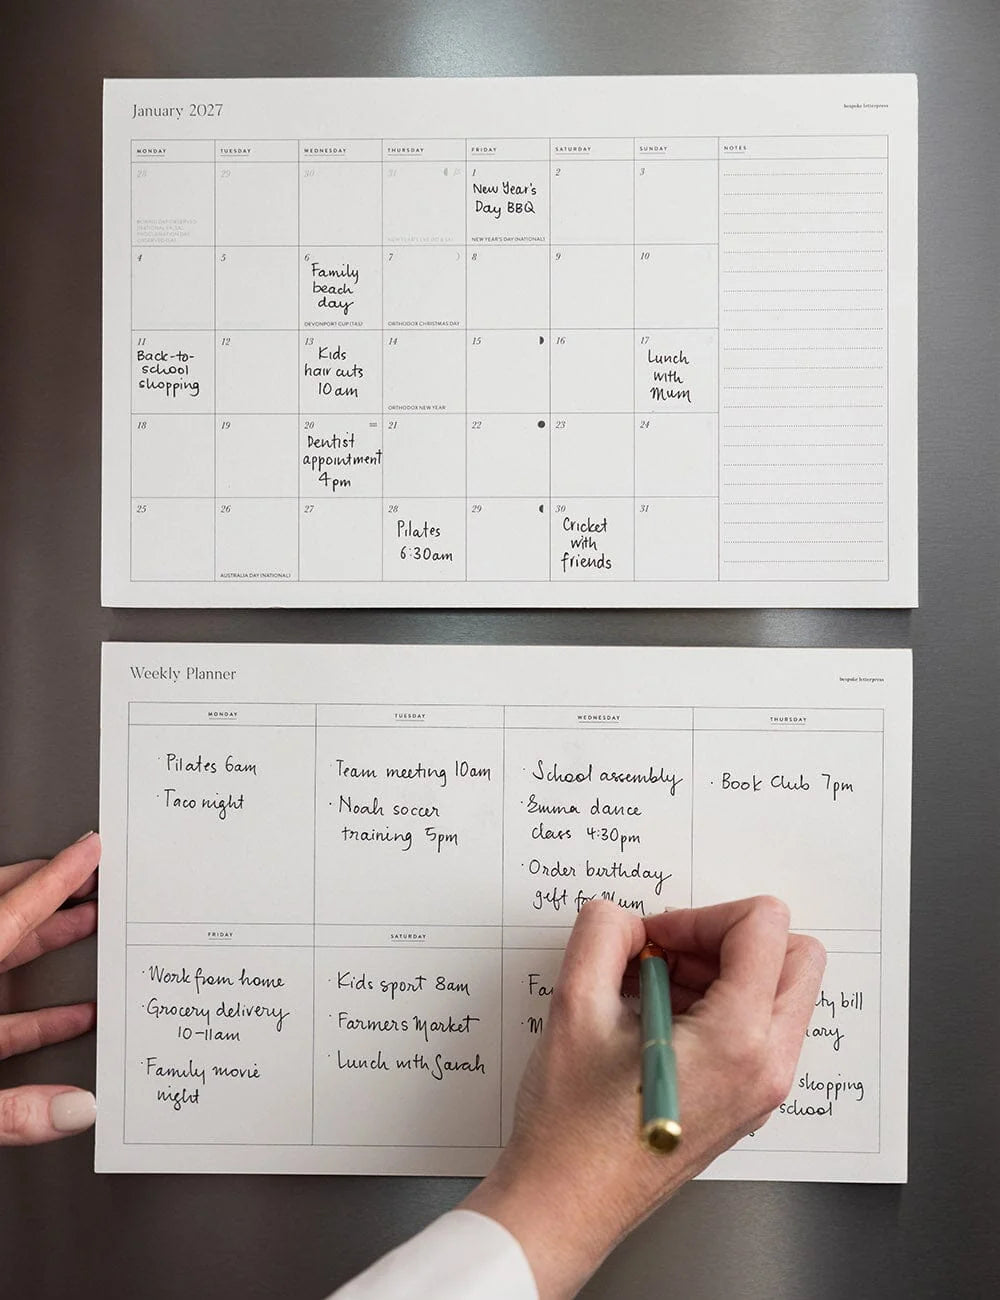 January 2027
bespoke letterpress
MONDAY TUESDAY WEDNESDAY THURSDAY FRIDAY SATURDAY SUNDAY NOTES
28 29 30 31 1 2 3
New Year's
Day BBQ
NEW YEAR'S DAY (NATIONAL)
4 5 6 7 8 9 10
Family
beach
day
DEVONPORT CUP (TAS)
ORTHODOX CHRISTMAS DAY
11 12 13 14 15 16 17
Back-to-
school
shopping
Kids
hair cuts
10am
ORTHODOX NEW YEAR
Lunch
with
Mum
18 19 20 21 22 23 24
Dentist
appointment
4pm
25 26 27 28 29 30 31
AUSTRALIA DAY (NATIONAL)
Pilates
6:30am
Cricket
with
friends
Weekly Planner
bespoke letterpress
MONDAY
· Pilates 6am
· Taco night
TUESDAY
· Team meeting 10am
· Noah soccer
training 5pm
WEDNESDAY
· School assembly
· Emma dance
class 4:30pm
· Order birthday
gift for Mum
THURSDAY
· Book Club 7pm
FRIDAY
· Work from home
· Grocery delivery
10-11am
· Family movie
night
SATURDAY
· Kids sport 8am
· Farmers Market
· Lunch with Sarah
bill
shopping
school